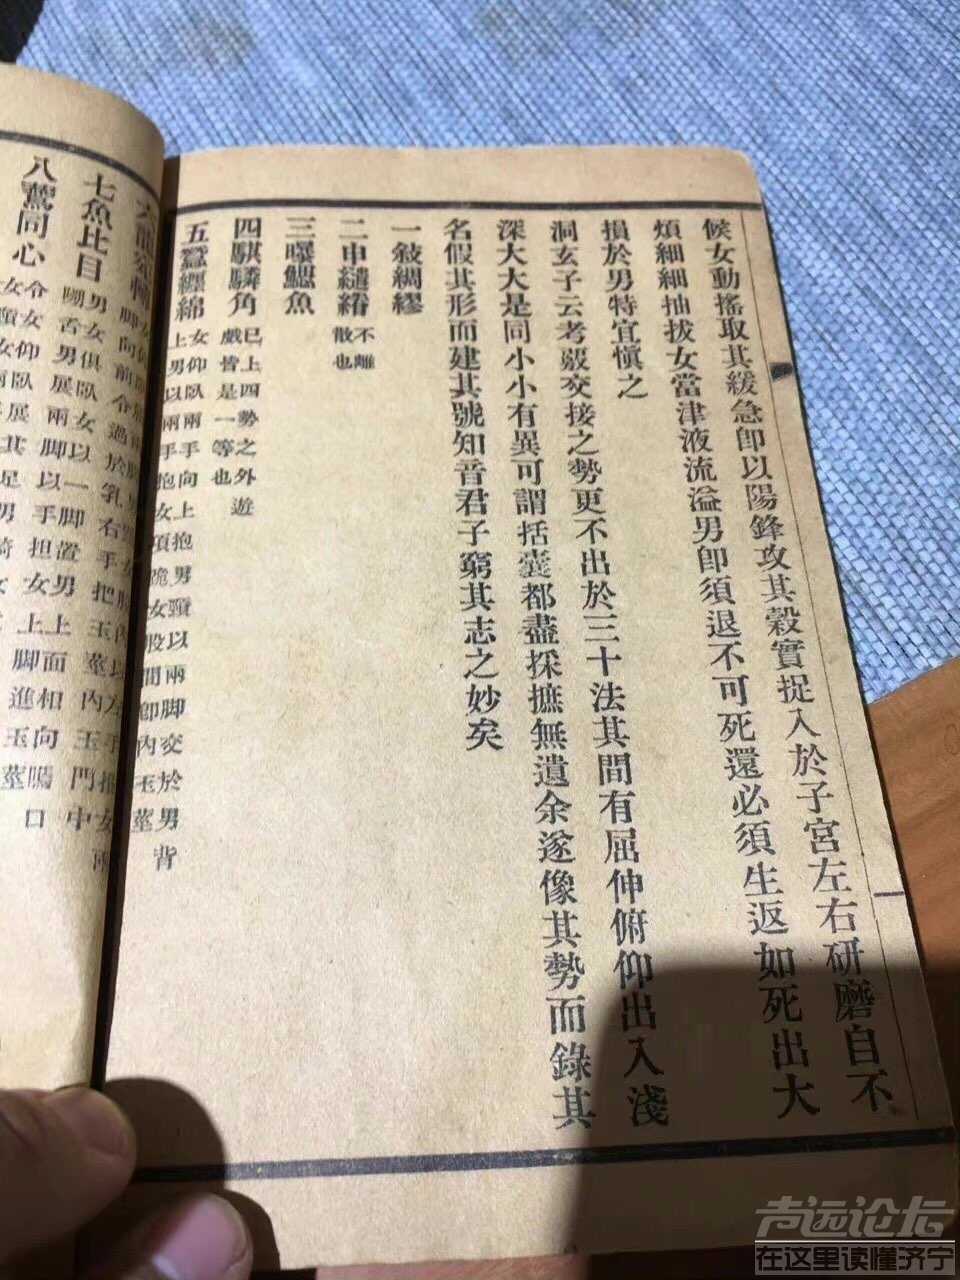 候女動搖取其緩急卽以陽鋒攻其穀實捉入於子宮左右研磨自不
煩細細抽拔女當津液流溢男卽須退不可死還必須生返如死出大
損於男特宜愼之
洞玄子云考覈交接之勢更不出於三十法其間有屈伸俯仰出入淺
深大大是同小小有異可謂括囊都盡採摭無遺余遂像其勢而錄其
名假其形而建其號知音君子窮其志之妙矣
一敍綢繆
二申繾綣不離散也
三曝鰓魚
四騏驎角已上四勢之外遊戲皆是一等也
五蠶纏綿女仰臥兩手向上抱男頸以兩脚交於男背
上男以兩手抱女項跪女股間卽內玉莖
七魚比目男女俱臥女以一脚置男上面相向嗚口
嗍舌男展兩脚以手担女上脚進玉莖
八鷰同心令女仰臥展其足男騎女
声远论坛
在这里读懂济宁